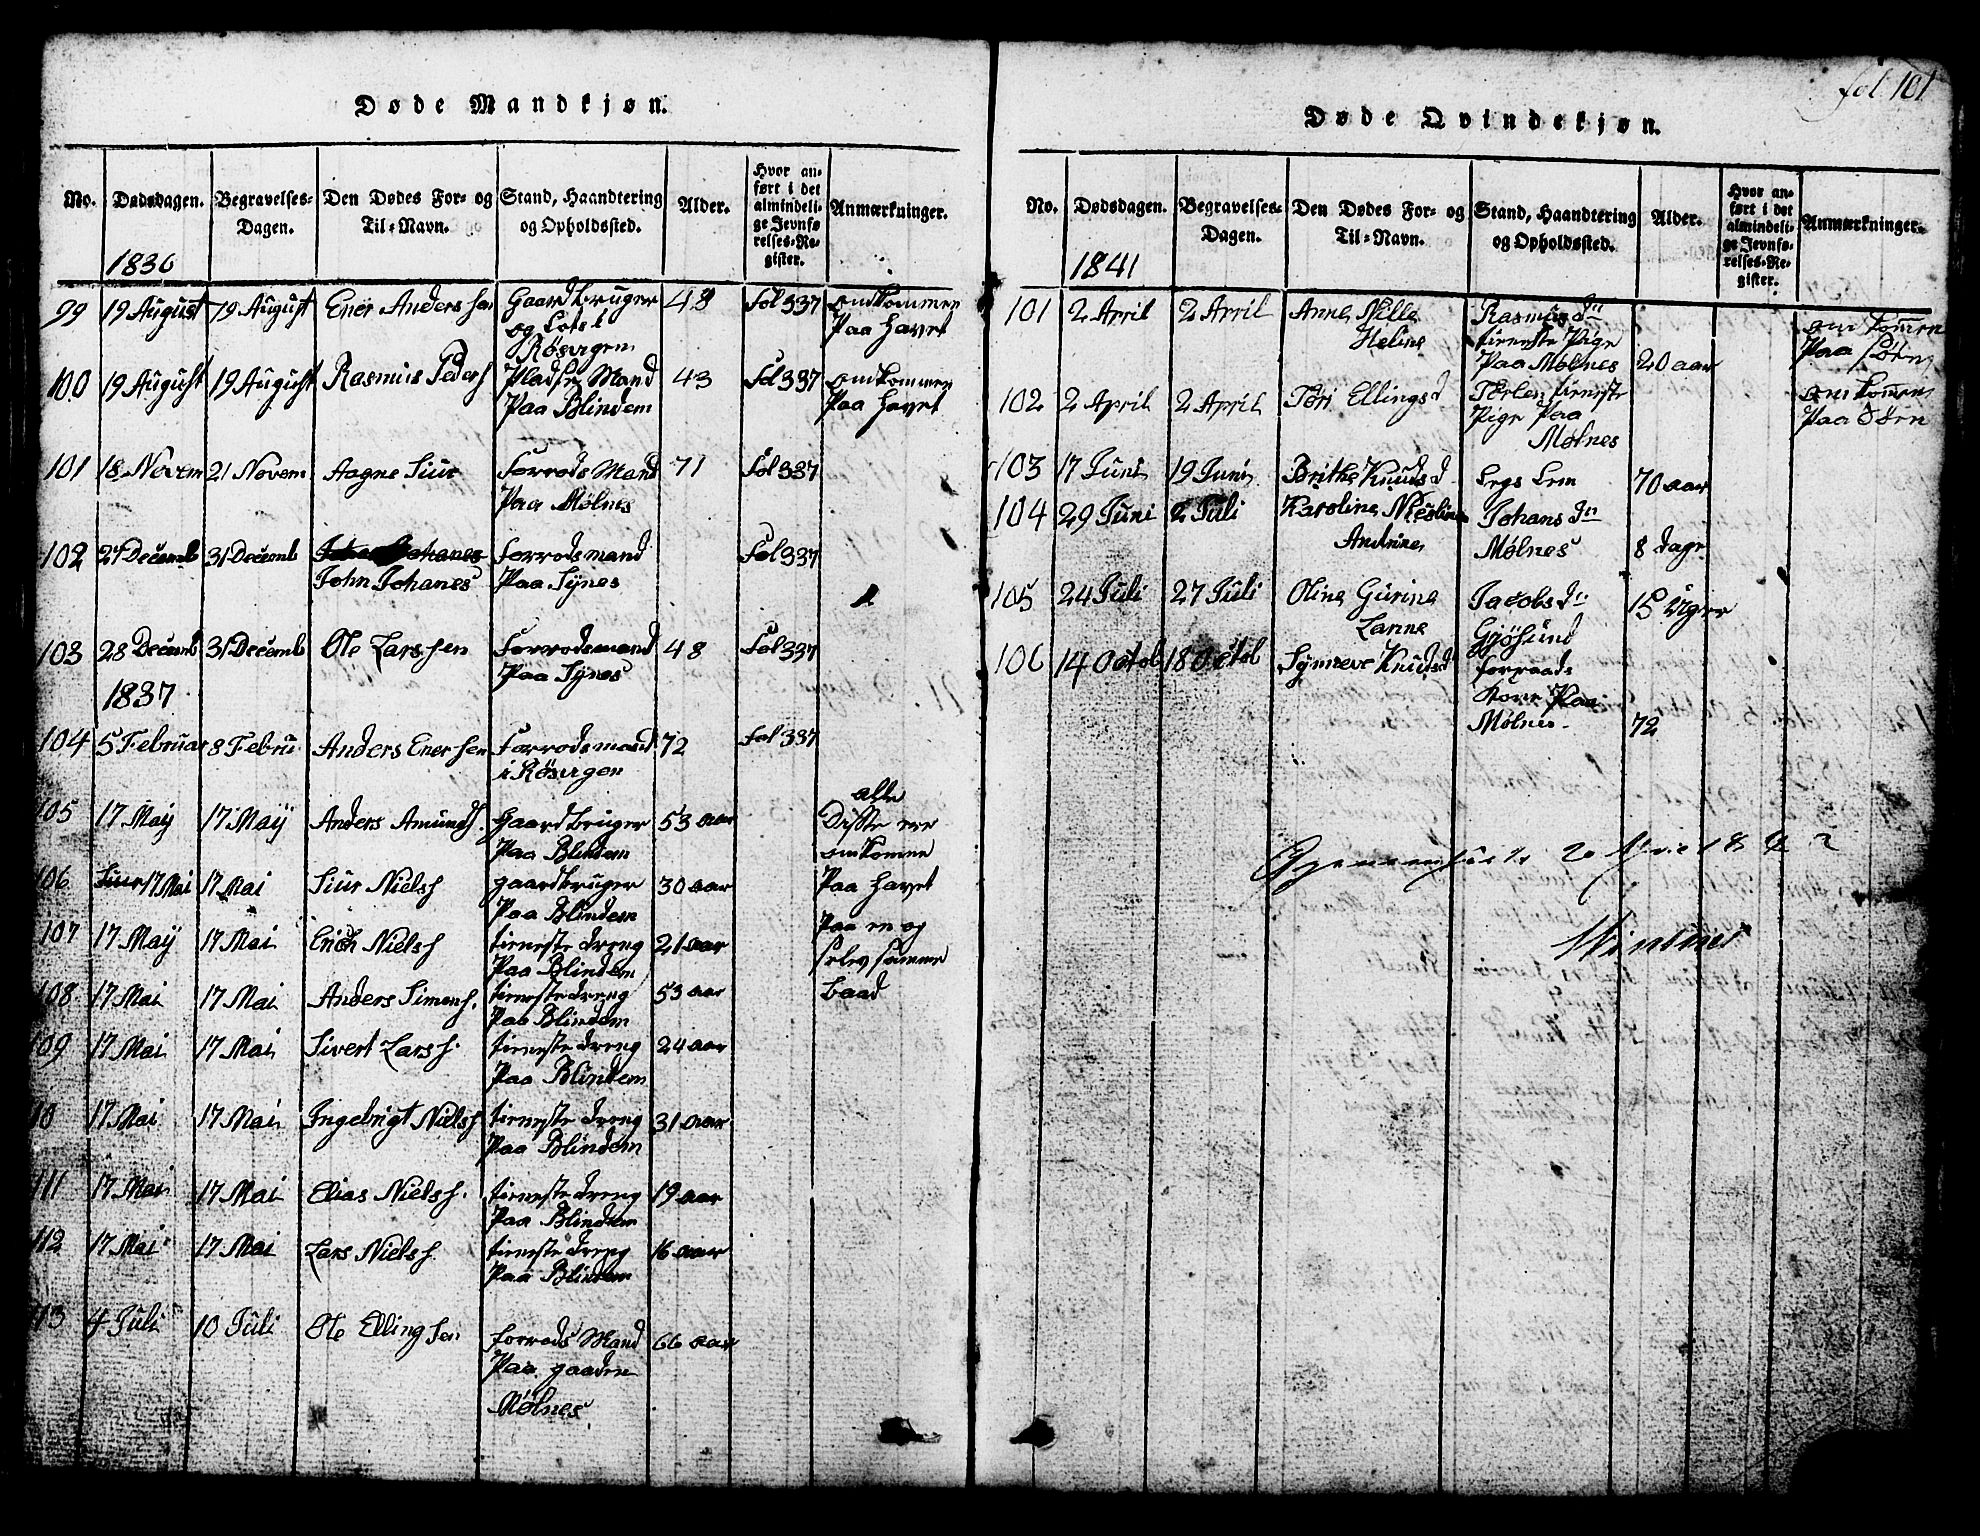 fol 101
Døde Mandkjøn.
No. Dødsdagen. Begravelses-Dagen. Den Dødes For- og Til-Navn. Stand, Haandtering og Opholdssted. Alder. Hvor anført i det almindelige Jevnførelses-Register. Anmærkninger.
1836
99 19 August 19 August Ener Andershen Gaardbruger 48 Fol 337 omkommen
og Lots i Paa Havet
Røsvigen
100 19 August 19 August Rasmus Pedersh Pladses Mand 43 Fol 337 omkommen
Paa Blindem Paa Havet
101 18 Novem 21 Novem Aagne Siur Forrods Mand 71 Fol 337
Paa Mølnes
102 27 Decemb 31 Decemb Johanes Forrodsmand Fol 337
John Johanes Paa Synes
103 28 Decemb 31 Decemb Ole Larshen Forrodsmand 48 Fol 337
Paa Synes
1837
104 5 Februar 8 Febru Anders Enershen Forrodsmand 72 Fol 337
i Røsvigen
alle
105 17 May 17 May Anders Amundsh. Gaardbruger 53 aar Disse ere
Paa Blindem omkomne
106 Siur 17 Mai 17 Mai Siur Nielsh gaardbruger 30 aar Paa Havet
Paa Blindem
107 17 May 17 Mai Erich Nielsh tieneste dreng 21 aar Paa en og
Paa Blindem selv samme
108 17 Mai 17 Mai Anders Simensh. tieneste dreng 53 aar baad
Paa Blindem
109 17 Mai 17 Mai Sivert Larsh. tieneste dreng 24 aar
Paa Blindem
10 17 Mai 17 Mai Ingebrigt Nielsh tieneste dreng 31 aar
Paa Blindem
111 17 Mai 17 Mai Elias Nielsh. tieneste dreng 19 aar
Paa Blindem
112 17 Mai 17 Mai Lars Nielsh. tieneste dreng 16 aar
Paa Blindem
113 4 Juli 10 Juli Ole Ellingsen forrods Mand 66 aar
Paa gaaden
Mølnes
Døde Qvindekjøn.
No. Dødsdagen. Begravelses-Dagen. Den Dødes For- og Til-Navn. Stand, Haandtering og Opholdssted. Alder. Hvor anført i det almindelige Jevnførelses-Register. Anmærkninger.
1841
101 2 April 2 April Anne Nille Rasmus dn omkommen
Heline tieneste Pige Paa Søen
Paa Mølnes 20 aar
102 2 April 2 April Tøri Ellingsd tieneste omkommen
Pige Paa Paa Søen
Mølnes
103 17 Juni 19 Juni Brithe Knudsd Legs Lem 70 aar
104 29 Juni 2 Juli Karoline Johans dn
Andrine Mølnes 8 dage
105 24 Juli 27 Juli Oline Gurine Jacobs dn 15 Uger
Lanne Gjøsund
106 14 Octob 18 Octob Synneve Knudsd forraads
kone Paa
Mølnes 72
20 April 1842